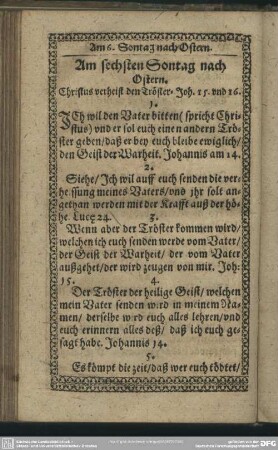 Am 6. Sontag nach Ostern.
Am sechsten Sontag nach
Ostern.
Christus verheist den Tröster. Joh. 15. vnd 16.
1.
ICh wil den Vater bitten (spricht Chri-
stus) vnd er sol euch einen andern Trö-
ster geben/daß er bey euch bleibe ewiglich/
den Geist der Warheit. Johannis am 14.
2.
Siehe/ Ich wil auff euch senden die ver-
heissung meines Vaters/vnd jhr solt an-
gethan werden mit der Krafft auß der hö-
he. Luce 24.
3.
Wenn aber der Tröster kommen wird/
welchen ich euch senden werde vom Vater/
der Geist der Warheit/ der vom Vater
außgehet/der wird zeugen von mir. Joh:
15.
4.
Der Tröster der heilige Geist/ welchen
mein Vater senden wird in meinem Na-
men/ derselbe wird euch alles lehren/vnd
euch erinnern alles deß/ daß ich euch ge-
sagt habe. Johannis 14.
5.
Es kömpt die zeit/daß wer euch tödtet/